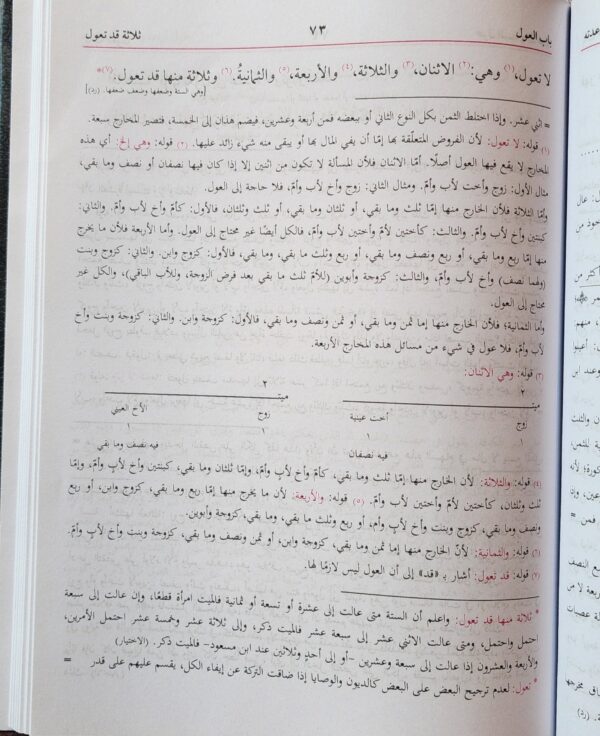 باب العول ٧٣ ثلاثة قد تعول
لا تعول،(١) وهي:(٢) الاثنان،(٣) والثلاثة،(٤) والأربعة،(٥) والثمانية.(٦) وثلاثة منها قد تعول.(٧)*
[وهي الستة وضعفها وضعف ضعفها. (رد)]
= اثني عشر. وإذا اختلط الثمن بكل النوع الثاني أو ببعضه فمن أربعة وعشرين، فيضم هذان إلى الخمسة، فتصير المخارج سبعة.
(١) قوله: لا تعول: لأن الفروض المتعلّقة بها إمّا أن يفي المال بها أو يبقى منه شيء زائد عليها. (٢) قوله: وهي إلخ: أي هذه
المخارج لا يقع فيها العول أصلًا. أمّا الاثنان فلأن المسألة لا تكون من اثنين إلا إذا كان فيها نصفان أو نصف وما بقي،
مثال الأول: زوج وأخت لأب وأمّ. ومثال الثاني: زوج وأخ لأب وأمّ، فلا حاجة إلى العول.
وأمّا الثلاثة فلأن الخارج منها إمّا ثلث وما بقي، أو ثلثان وما بقي، أو ثلث وثلثان، فالأول: كأمّ وأخ لأب وأمّ. والثاني:
كبنتين وأخ لأب وأمّ. والثالث: كأختين لأمّ وأختين لأب وأمّ، فالكل أيضًا غير محتاج إلى العول. وأما الأربعة فلأن ما يخرج
منها إمّا ربع وما بقي، أو ربع ونصف وما بقي، أو ربع وثلث ما بقي وما بقي، فالأول: كزوج وابن. والثاني: كزوج وبنت
(وفيهما نصف) وأخ لأب وأمّ، والثالث: كزوجة وأبوين (للأمّ ثلث ما بقي بعد فرض الزوجة، وللأب الباقي)، والكل غير
محتاج إلى العول.
وأما الثمانية؛ فلأن الخارج منها إما ثمن وما بقي، أو ثمن ونصف وما بقي، فالأول: كزوجة وابن. والثاني: كزوجة وبنت وأخ
لأب وأمّ، فلا عول في شيء من مسائل هذه المخارج الأربعة.
(٣) قوله: وهي الاثنان:
ميـ ٢ ميـ ٢
زوج أخت عينية زوج الأخ العيني
١ ١ ١ ١
فيه نصفان فيه نصف وما بقي
(٤) قوله: والثلاثة: لأن الخارج منها إمّا ثلث وما بقي، كأمّ وأخ لأبٍ وأمّ، وإمّا ثلثان وما بقي، كبنتين وأخ لأبٍ وأمّ، وإمّا
ثلث وثلثان، كأختين لأمّ وأختين لأب وأمّ. (٥) قوله: والأربعة: لأن ما يخرج منها إمّا ربع وما بقي، كزوج وابن، أو ربع
ونصف وما بقي، كزوج وبنت وأخ لأب وأم، أو ربع وثلث ما بقي وما بقي، كزوجة وأبوين.
(٦) قوله: والثمانية: لأنّ الخارج منها إما ثمن وما بقي، كزوجة وابن، أو ثمن ونصف وما بقي، كزوجة وبنت وأخ لأبٍ وأمّ.
(٧) قوله: قد تعول: أشار بـ «قد» إلى أن العول ليس لازمًا لها.
* ثلاثة منها قد تعول: واعلم أن الستة متى عالت إلى عشرة أو تسعة أو ثمانية فالميت امرأة قطعًا، وإن عالت إلى سبعة
احتمل واحتمل، ومتى عالت الاثني عشر إلى سبعة عشر فالميت ذكر، وإلى ثلاثة عشر وخمسة عشر احتمل الأمرين،
والأربعة والعشرون إذا عالت إلى سبعة وعشرين -أو إلى أحدٍ وثلاثين عند ابن مسعود- فالميت ذكر. (الاختيار)
* تعول: لعدم ترجيح البعض على البعض كالديون والوصايا إذا ضاقت التركة عن إيفاء الكل، يقسم عليهم على قدر =